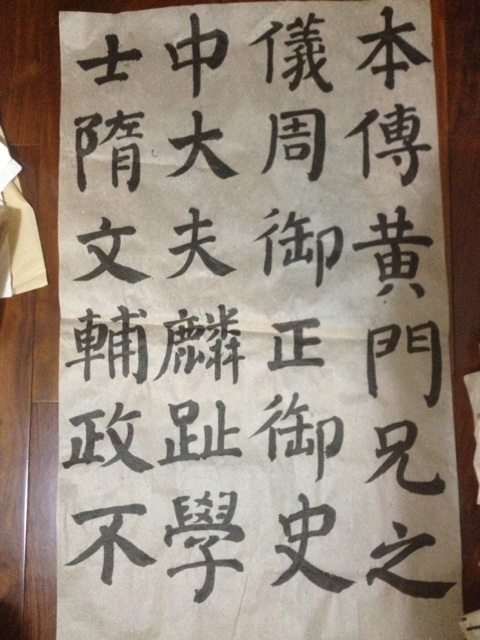 本傳黃門兄之
儀周御正御史
中大夫麟趾學
士隋文輔政不